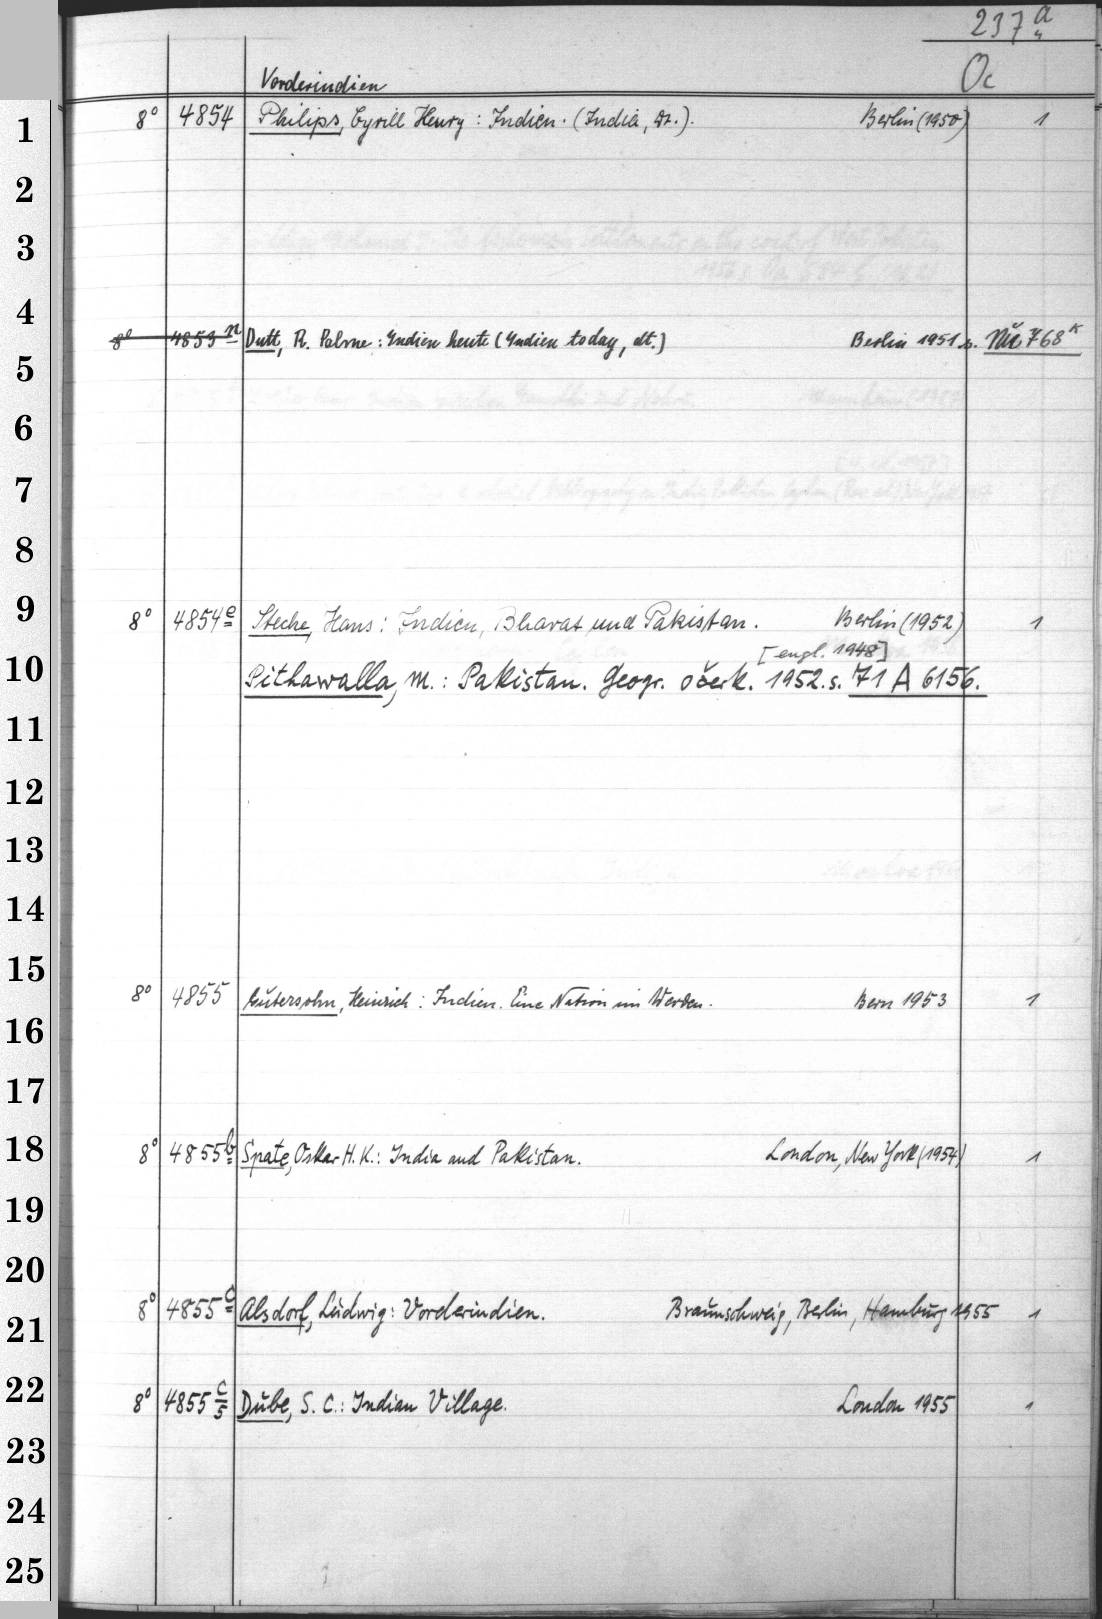 237 a
Oc
Vorderindien
1
8° 4854 Philips, Cyrill Henry: Indien. (India, dt.). Berlin (1950) 1
2
3
4
8° 4853 n Dutt, R. Palme: Indien heute (Indien today, dt.) Berlin 1951 s. 768 k
5
6
7
8
9
8° 4854 e Steche, Hans: Indien, Bharat und Pakistan. Berlin (1952) 1
[engl. 1948]
10
Pithawalla, M.: Pakistan. Geogr. očerk. 1952. s. 71 A 6156.
11
12
13
14
15
8° 4855 Gutersohn, Heinrich: Indien. Eine Nation im Werden. Bern 1953 1
16
17
18
8° 4855 b Spate, Oskar H. K.: India and Pakistan. London, New York (1954) 1
19
20
8° 4855 c Alsdorf, Ludwig: Vorderindien. Braunschweig, Berlin, Hamburg 1955 1
21
22
8° 4855 c/5 Dube, S. C.: Indian Village. London 1955 1
23
24
25